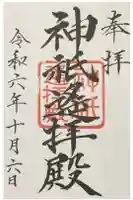 奉拝
神祇遥拝殿
令和六年十月六日